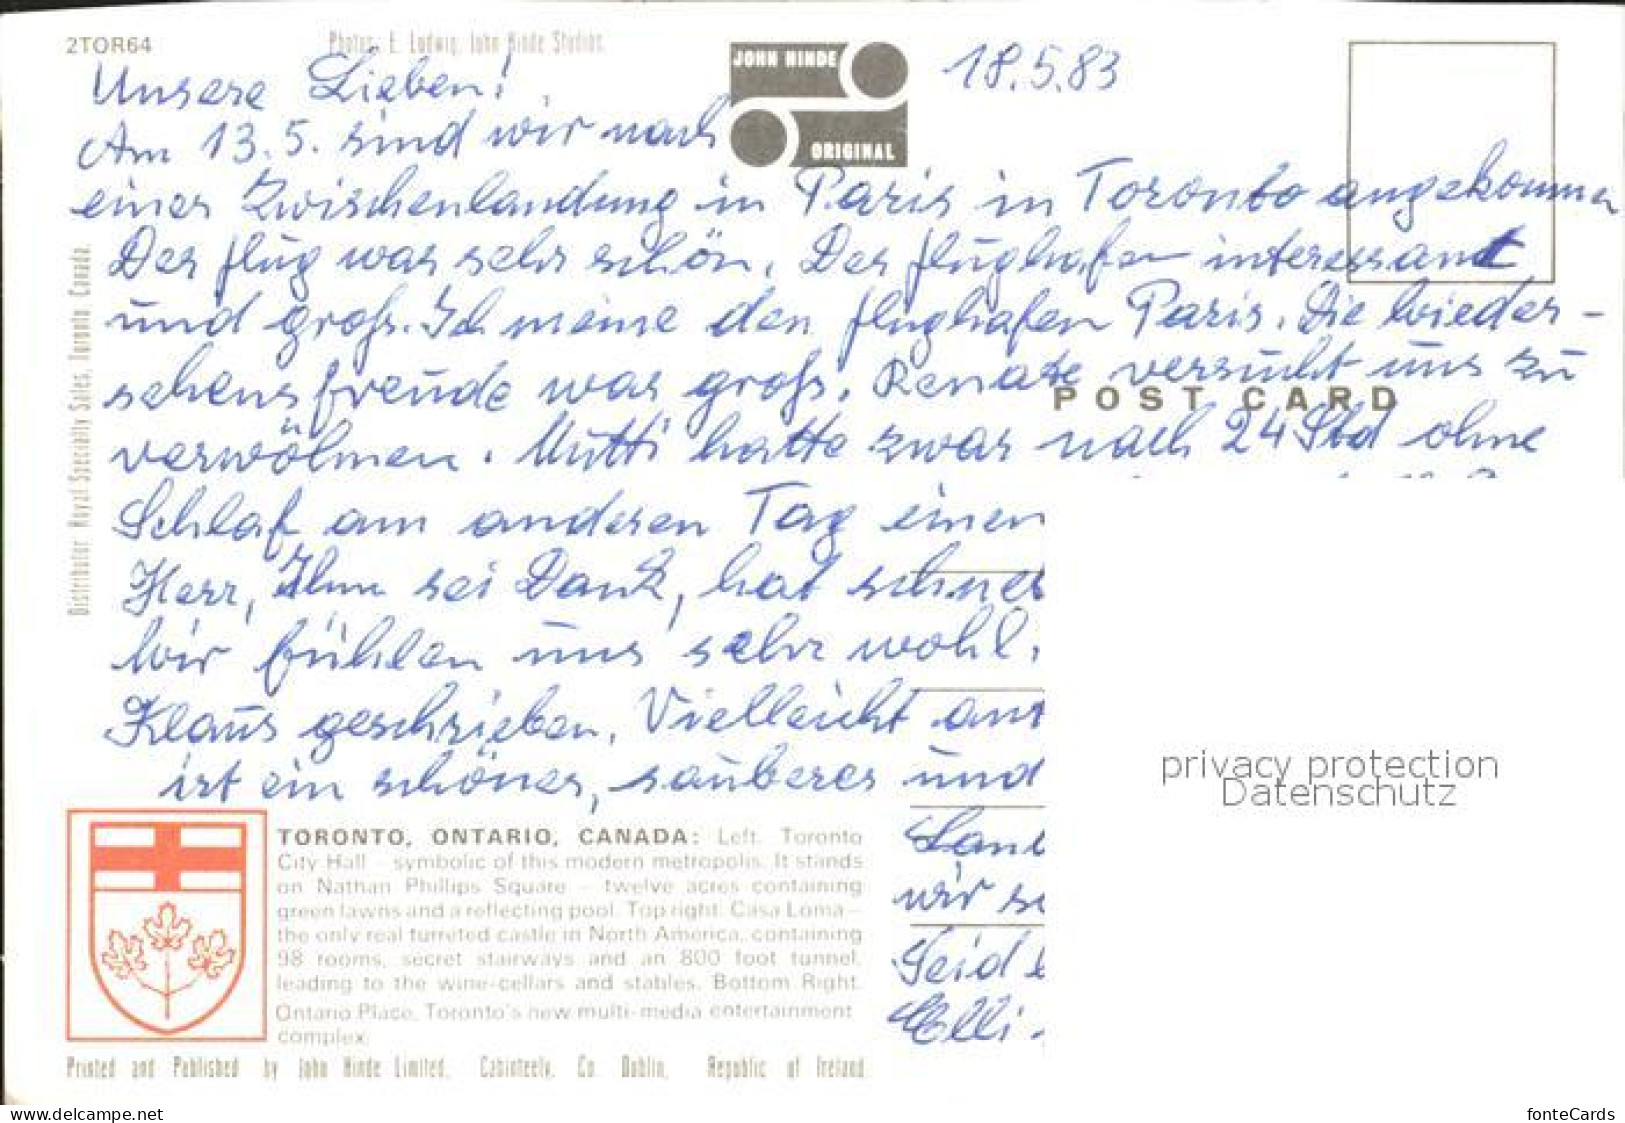 2TOR64
Photos: E. Ludwig, John Hinde Studios.
JOHN HINDE
ORIGINAL
18.5.83
Unsere Lieben!
Am 13.5. sind wir nach
einer Zwischenlandung in Paris in Toronto angekommen
Der Flug war sehr schön. Der Flughafen interessant
und groß. Ich meine den Flughafen Paris. Die Wieder-
sehensfreude war groß. Renate versucht uns zu
POST CARD
verwöhnen. Mutti hatte zwar nach 24 Std ohne
Schlaf am anderen Tag einen
Herr, Ihm sei Dank, hat schnel
Wir fühlen uns sehr wohl.
Klaus geschrieben. Vielleicht ant
ist ein schönes, sauberes und
Land
wir se
Seid
Elli
Distributor: Royal Specialty Sales, Toronto, Canada.
TORONTO, ONTARIO, CANADA: Left. Toronto
City Hall – symbolic of this modern metropolis. It stands
on Nathan Phillips Square – twelve acres containing
green lawns and a reflecting pool. Top right: Casa Loma –
the only real turreted castle in North America, containing
98 rooms, secret stairways and an 800 foot tunnel,
leading to the wine-cellars and stables. Bottom Right.
Ontario Place, Toronto's new multi-media entertainment
complex.
Printed and Published by John Hinde Limited, Cabinteely, Co. Dublin, Republic of Ireland
privacy protection
Datenschutz
www.delcampe.net
fonteCards